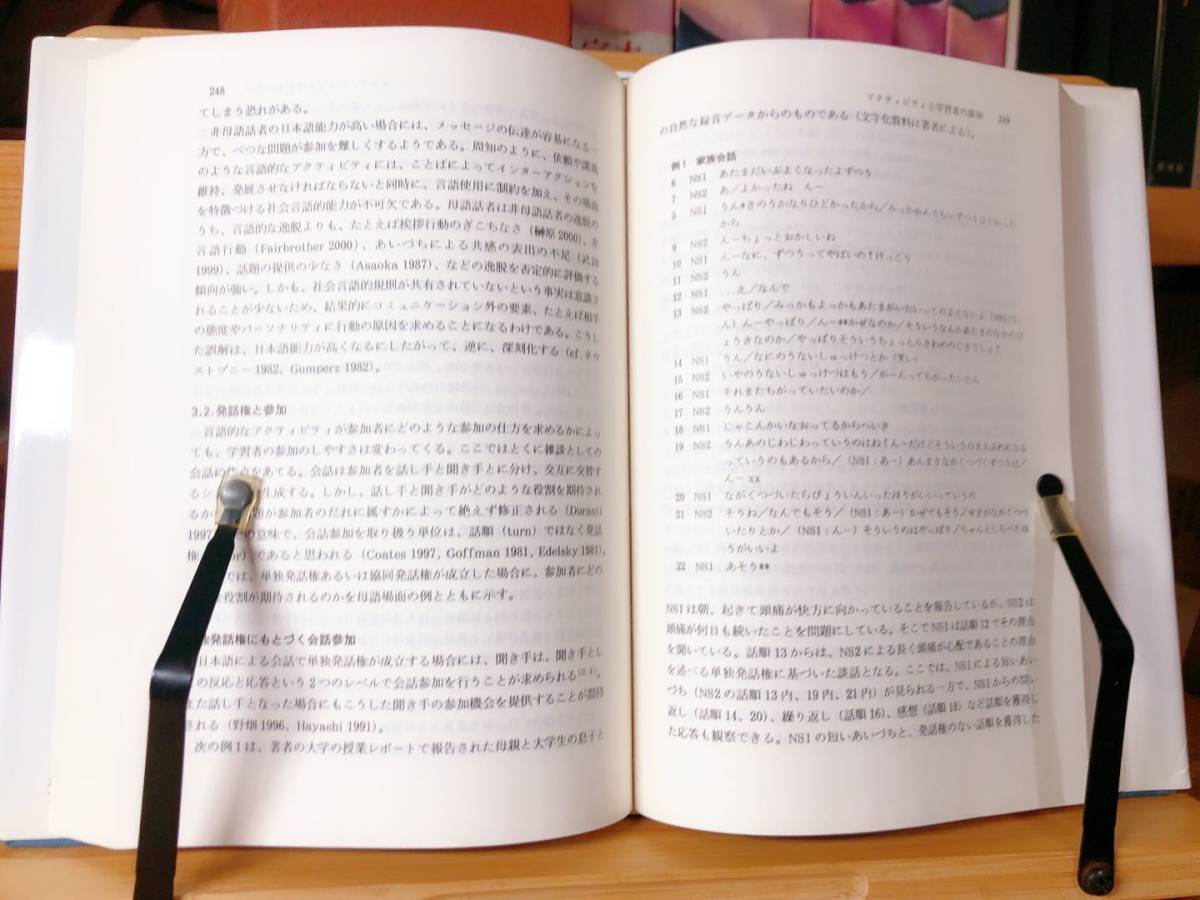 248
てしまう恐れがある。
非母語話者の日本語能力が高い場合には、メッセージの伝達が容易になる一
方で、べつな問題が参加を難しくするようである。周知のように、依頼や講義
のような言語的なアクティビティには、ことばによってインターアクションを
維持、発展させなければならないと同時に、言語使用に制約を加え、その場面
を特徴づける社会言語的能力が不可欠である。母語話者は非母語話者の逸脱の
うち、言語的な逸脱よりも、たとえば挨拶行動のぎこちなさ(榊原 2000)、非
言語行動 (Fairbrother 2000)、あいづちによる共感の表出の不足 (武田
1999)、話題の提供の少なさ (Asaoka 1987)、などの逸脱を否定的に評価する
傾向が強い。しかも、社会言語的規則が共有されていないという事実は意識さ
れることが少ないため、結果的にコミュニケーション外の要素、たとえば相手
の態度やパーソナリティに行動の原因を求めることになるわけである。こうし
た誤解は、日本語能力が高くなるにしたがって、逆に、深刻化する (cf.ネウ
ストプニー 1982, Gumperz 1982)。
3.2.発話権と参加
言語的なアクティビティが参加者にどのような参加の仕方を求めるかによっ
ても、学習者の参加のしやすさは変わってくる。ここではとくに雑談としての
会話に焦点をあてる。会話は参加者を話し手と聞き手とに分け、交互に交替す
るシ 生成する。しかし、話し手と聞き手がどのような役割を期待され
るか 題が参加者のだれに属すかによって絶えず修正される (Duranti
1997 の意味で、会話参加を取り扱う単位は、話順 (turn) ではなく発話
権 or) であると思われる (Coates 1997, Goffman 1981, Edelsky 1981)。
では、単独発話権あるいは協同発話権が成立した場合に、参加者にどの
な役割が期待されるのかを母語場面の例とともに示す。
発話権にもとづく会話参加
日本語による会話で単独発話権が成立する場合には、聞き手は、聞き手とし
の反応と応答という2つのレベルで会話参加を行うことが求められる
また話し手となった場合にもこうした聞き手の参加機会を提供することが期待
される (野畑 1996、Hayashi 1991)。
次の例1は、著者の大学の授業レポートで報告された母親と大学生の息子と
アクティビティと学習者の参加 249
の自然な録音データからのものである (文字化資料は著者による)。
例1 家族会話
6 NS1 あたまだいぶよくなったよずつう
7 NS2 あ/よかったね んー
NS1 うん*きのうかなりひどかったから/みっかかん
から
9 NS2 んーちょっとおかしいね
10 NS1 んーなに、ずつうってやばいの↑けっこう
11 NS2 うん
12 NS1 ...え/なんで
13 NS2 やっぱり/みっかもよっかもあたまがいたいってのよくないよ
ん) んーやっぱり/んー**かぜなのか/そういうなんかあたまのなかのび
ょうきなのか/やっぱりそういうちょっと
14 NS1 うん/なにのうないしゅっけつとか (笑い)
15 NS2 いやのうないしゅっけつはもう/がーんってちがったいたみ
16 NS1 それまたちがっていたいのか/
17 NS2 うんうん
18 NS1 じゃこんかいなおってるからへいき
19 NS2 うんあのじわじわっていうのはね↑んーだけどそういうの
っていうのもあるから/ (NS1:あー) あんまりながくつづくずつうは/
んー xx
20 NS1 ながくつづいたらびょういんいったほうがいいっていうの
21 NS2 そうね/なんでもそう/ (NS1:あー) かぜでもそう/せきがながくつづ
いたりとか/ (NS1:んー) そういうのはやっぱり/ちゃんとしらべたほ
うがいいよ
22 NS1 あそう**
NS1は朝、起きて頭痛が快方に向かっていることを報告しているが、NS2は
頭痛が何日も続いたことを問題にしている。そこでNS1は話順12でその理由
を聞いている。話順13からは、NS2による長く頭痛が心配であることの理由
を述べる単独発話権に基づいた談話となる。ここでは、NS1による短いあい
づち (NS2の話順13内、19内、21内) が見られる一方で、NS1からの問い
返し (話順14、20)、繰り返し (話順16)、感想 (話順18) など話順を獲得し
た応答も観察できる。NS1の短いあいづちと、発話権のない話順を獲得した